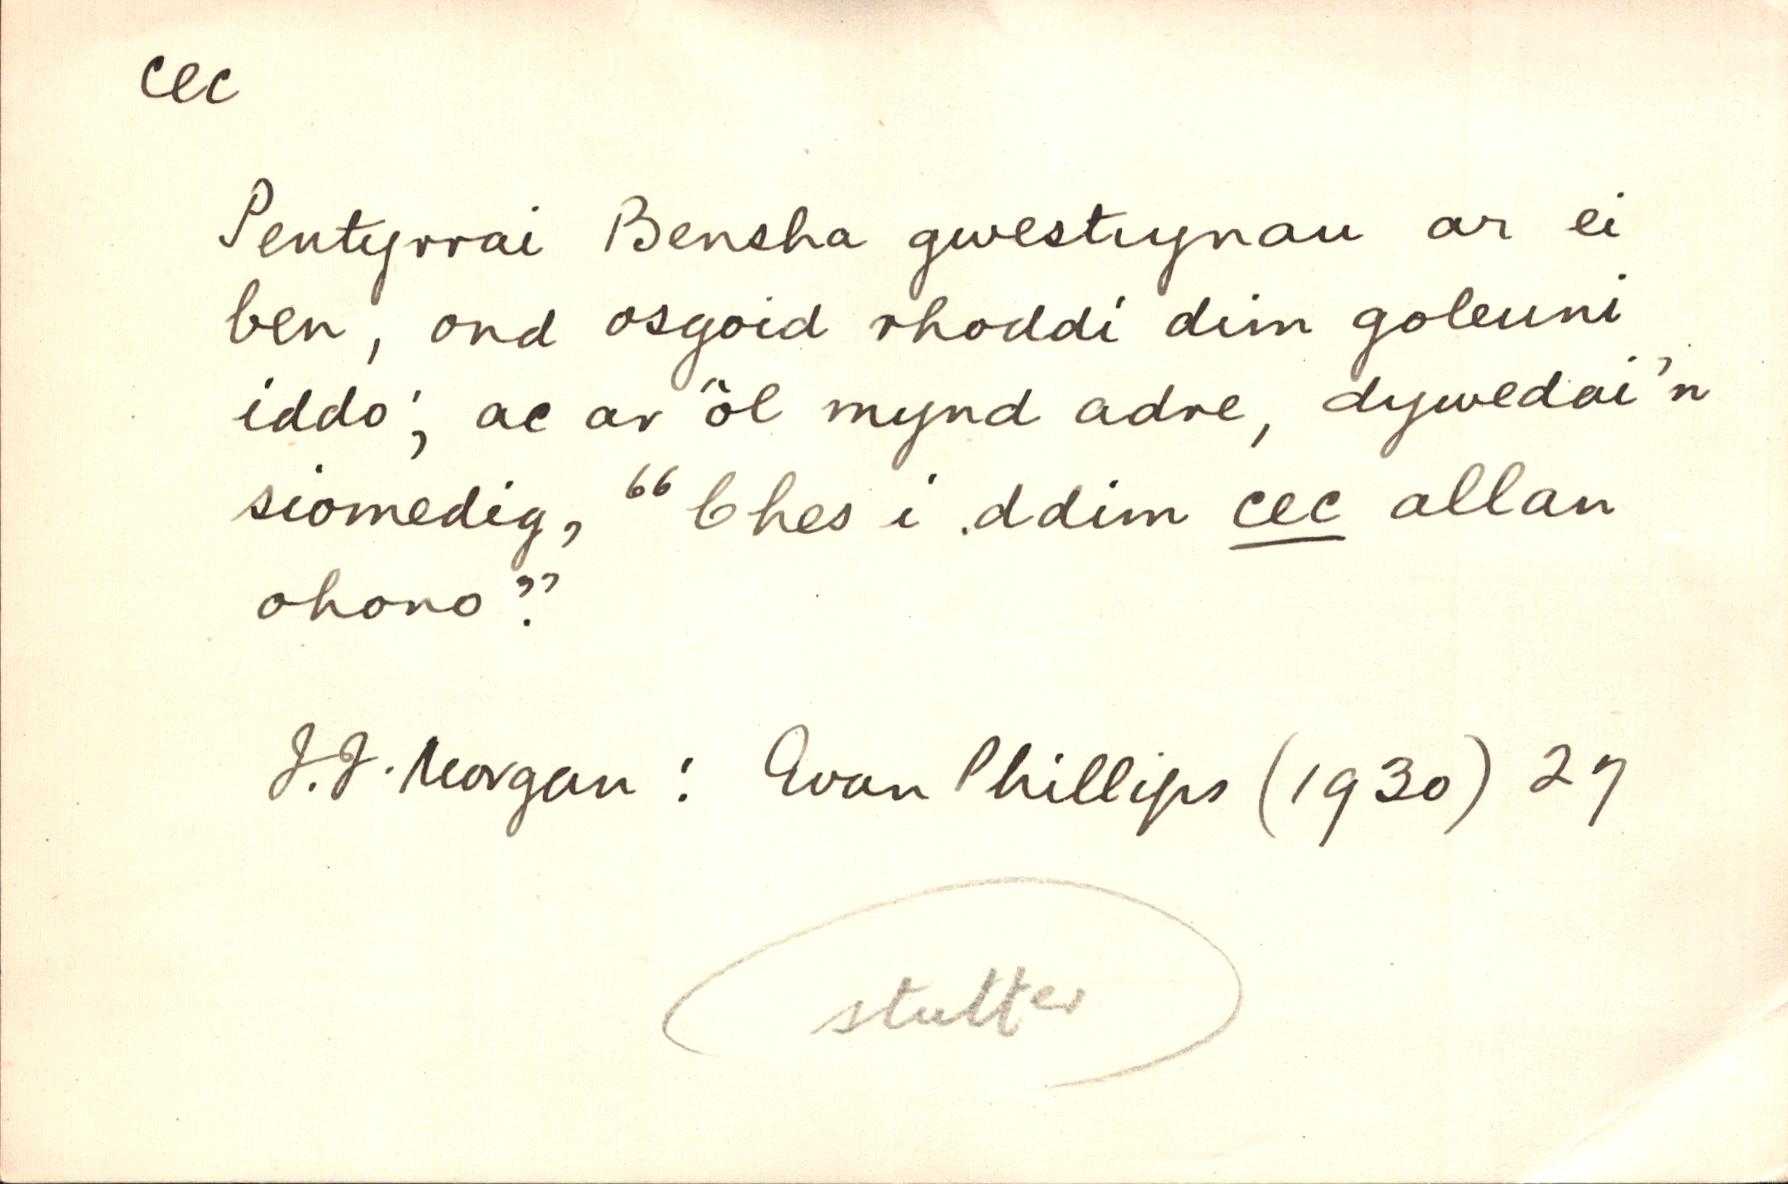 cec
Pentyrrai Bensha gwestiynau ar ei
ben, ond osgoid rhoddi dim goleuni
iddo; ac ar ôl mynd adre, dywedai'n
siomedig, "Ches i ddim cec allan
ohono".
J.J. Morgan : Evan Phillips (1930) 27
stutter